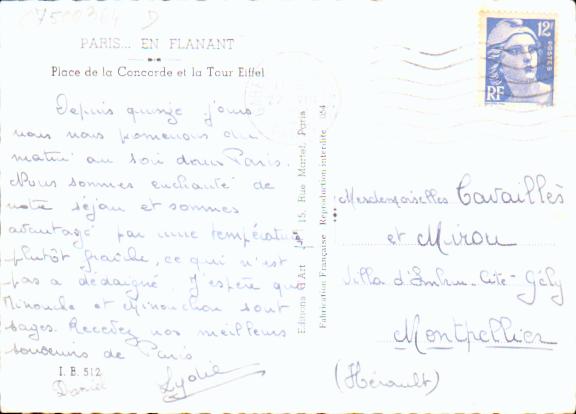 PARIS... EN FLANANT
Place de la Concorde et la Tour Eiffel
Depuis quinze jours
nous nous promenons du
matin au soir dans Paris.
Nous sommes enchanté de
notre séjour et sommes
avantagé par une température
plutôt fraîche, ce qui n'est
pas a dédaigné. J'espère que
Minouche et Minouchou sont
sages. Recevez nos meilleurs
souvenirs de Paris
I. B. 512
Daniel
Lydie
Editions d'Art 15, Rue Martel, Paris
Fabrication Française Reproduction interdite 054
12F
POSTES
RF
Mesdemoiselles Cavaillès
et Mirou
Villa d' Cité-Gély
Montpellier
(Hérault)